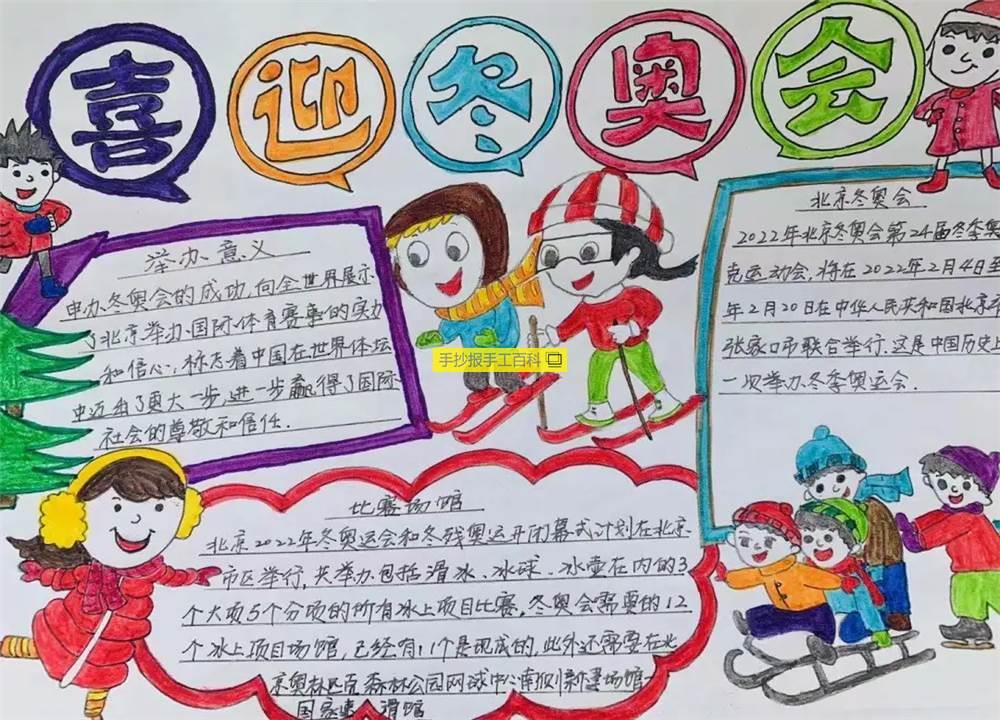 喜迎冬奥会
举办意义
申办冬奥会的成功,向全世界展示
了北京举办国际体育赛事的实力
和信心,标志着中国在世界体坛
中迈出了更大一步,进一步赢得了国际
社会的尊敬和信任.
手抄报手工百科
北京冬奥会
2022年北京冬奥会第24届冬季奥
克运动会,将在2022年2月4日至
年2月20日在中华人民共和国北京市
张家口市联合举行.这是中国历史上
一次举办冬季奥运会.
比赛场馆
北京2022年冬奥运会和冬残奥运开闭幕式计划在北京
市区举行,共举办包括滑冰、冰球、冰壶在内的3
个大项5个分项的所有冰上项目比赛,冬奥会需要的12
个冰上项目场馆,已经有11个是现成的,此外还需要在北
京奥林匹克森林公园网球中心南侧新建场馆
国家速滑馆